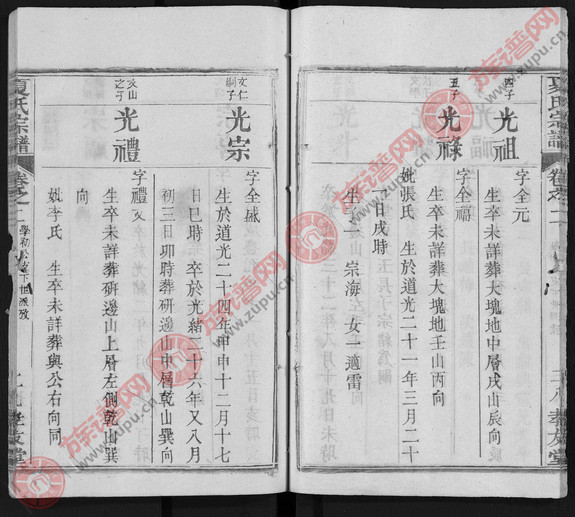 夏氏宗譜
卷之二
孝友堂
四子
光祖
字全元
生卒未詳葬大塊地中層戌山辰向
五子
光祿
字全福
生卒未詳葬大塊地壬山丙向
妣張氏 生於道光二十一年三月二十
一日戌時
生子一 宗海 女一適雷
文仁
嗣子
光宗
字全盛
生於道光二十四年甲申十二月十七
日巳時 卒於光緒二十六年又八月
初三日卯時葬研邊山中層乾山巽向
文山
之子
光禮
字禮文
生卒未詳葬研邊山上層左側乾山巽
向
妣李氏 生卒未詳葬與公右向同
夏氏宗譜
卷之二
學初公支下世派攷
孝友堂
族谱网
www.zupu.cn
族谱网
www.zupu.cn
族谱网
www.zupu.cn